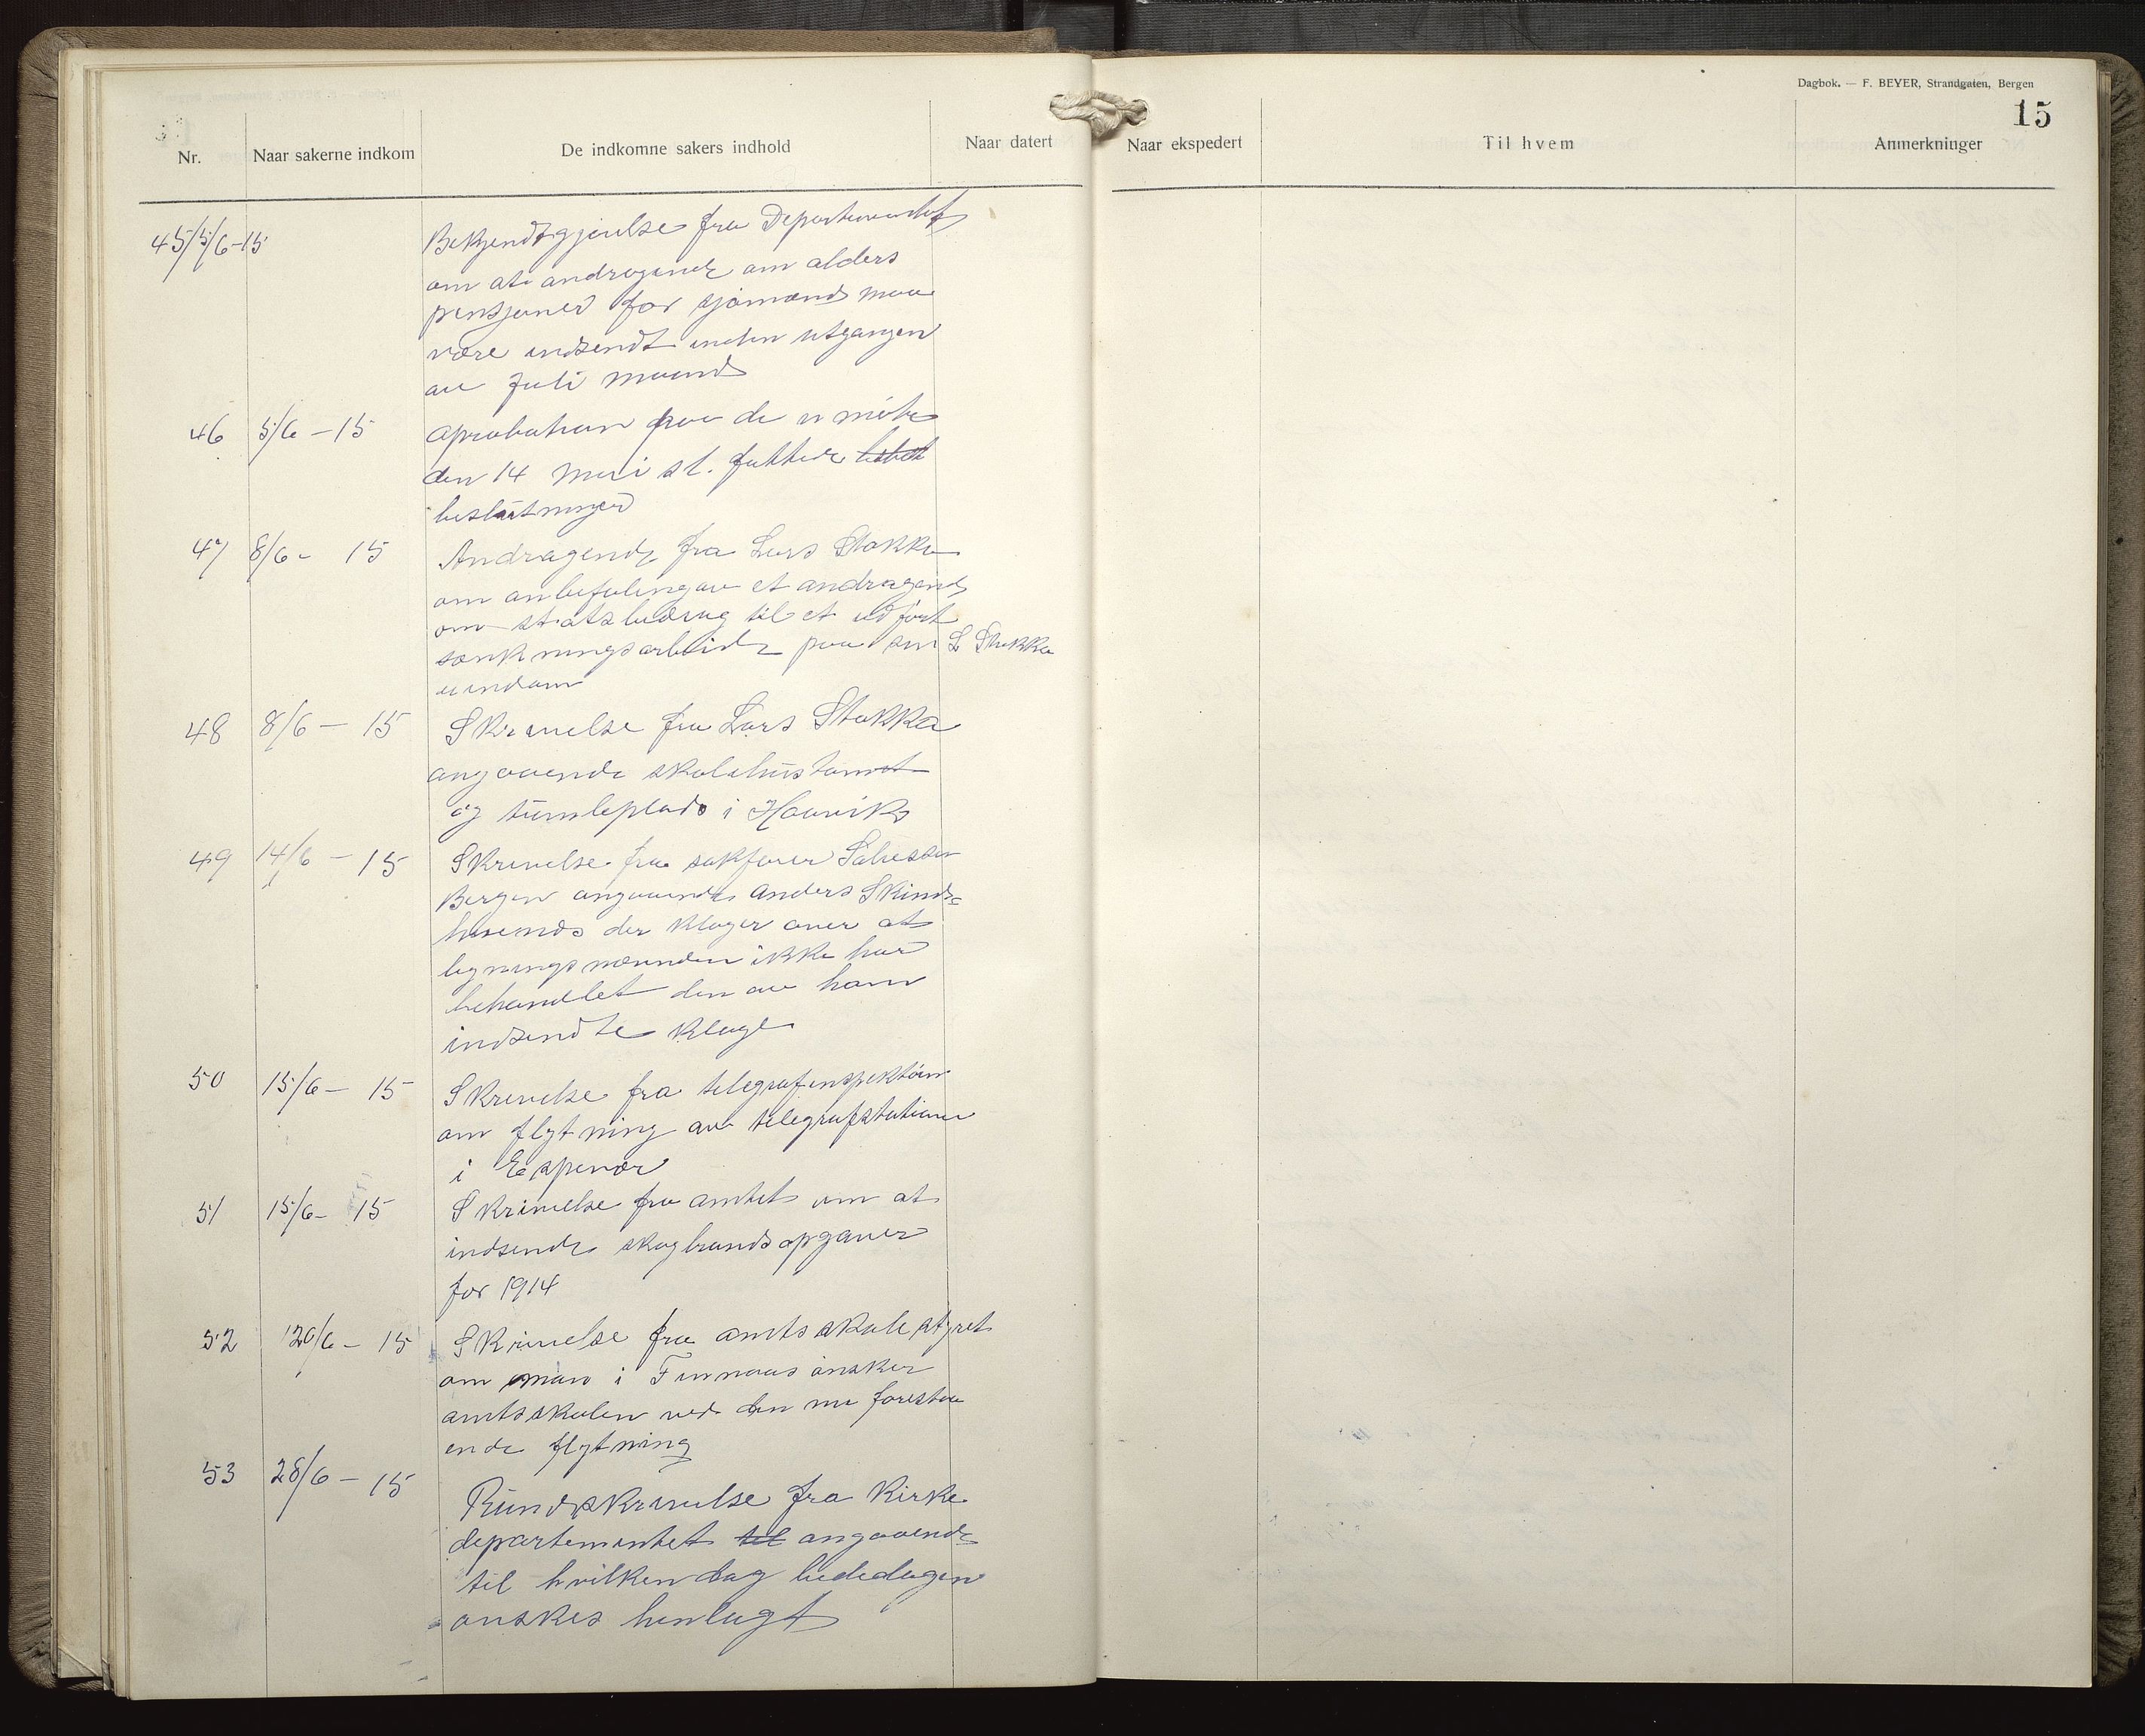 Dagbok. — F. BEYER, Strandgaten, Bergen
15
Nr. Naar sakerne indkom De indkomne sakers indhold Naar datert Naar ekspedert Til hvem Anmerkninger
45 5/6-15 Bekjendtgjørelse fra Departementet
om at andragende om alders
pensjoner for sjømænd maa
være indsendt inden utgangen
av Juli maand
46 5/6 - 15 Aprobation paa de i møte
den 14 mai st. fattede
beslutninger
47 8/6 - 15 Andragende fra Lars Stokka
om anbefaling av et andragende
om statsbidrag til et utført
sænkningsarbeide paa sin L Stokka
eiendom
48 8/6 - 15 Skrivelse fra Lars Stokka
angaaende skolehustomt
og tumleplads i Hovvik
49 14/6 - 15 Skrivelse fra sakfører
Bergen angaaende Anders Skinds-
der klager over at
ligningsnævnden ikke har
behandlet den av ham
indsendte klage
50 15/6 - 15 Skrivelse fra telegrafinspektøren
om flytning av telegrafstationen
i Espevær
51 15/6 - 15 Skrivelse fra amtet om at
indsende skogbrandsopgaver
for 1914
52 20/6 - 15 Skrivelse fra amtsskolestyret
om man i Finnaas ønsker
amtsskolen ved den nu forestaa
ende flytning
53 28/6 - 15 Rundskrivelse fra Kirke
departementet til angaaende
til hvilken dag bededagen
ønskes henlagt